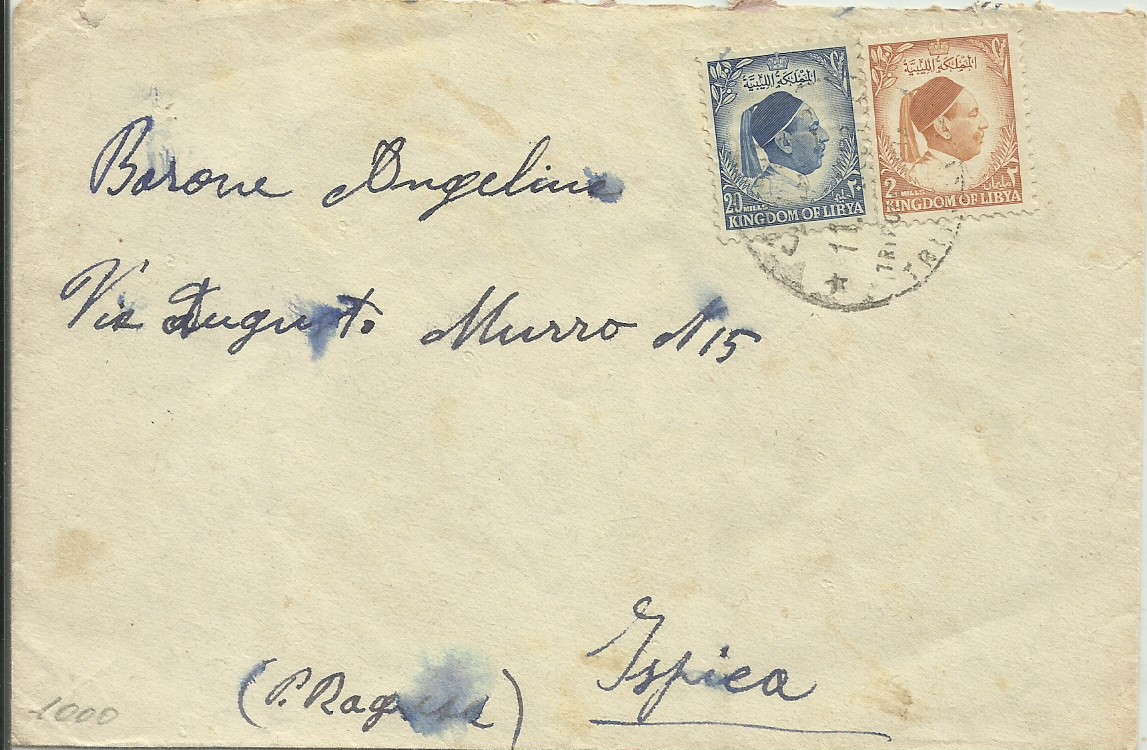 المملكة الليبية
20 MILLS ٢٠
KINGDOM OF LIBYA
المملكة الليبية
2 MILLS مليمان ٢
KINGDOM OF LIBYA
TRIPO
TRIP
Barone Angelina
Via Augusto Murro N 15
Ispica
(P. Ragusa)
1000